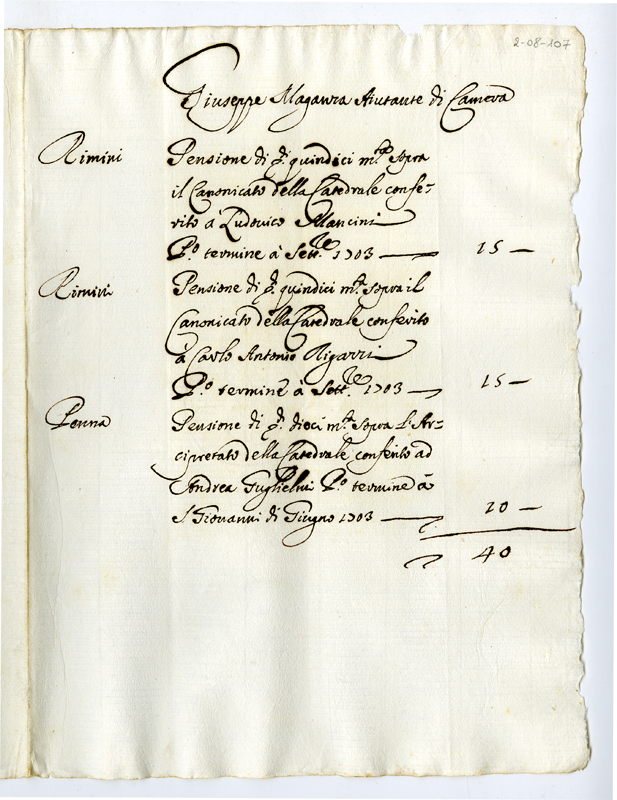 2-08-107
Giuseppe Maganza Aiutante di Camera
Rimini Pensione di quindici m.ta sopra
il Canonicato della Catedrale confe-
rito à Ludovico Mancini
P.o termine à Sett.re 1703 — 15 —
Rimini Pensione di quindici m.ta sopra il
Canonicato della Catedrale conferito
à Carlo Antonio
P.o termine à Sett.re 1703 — 15 —
Penna Pensione di dieci m.ta sopra l'Ar-
cipretato della Catedrale conferito ad
Andrea Guglielmi P.o termine à
S Giovanni di Giugno 1703 — 10 —
40